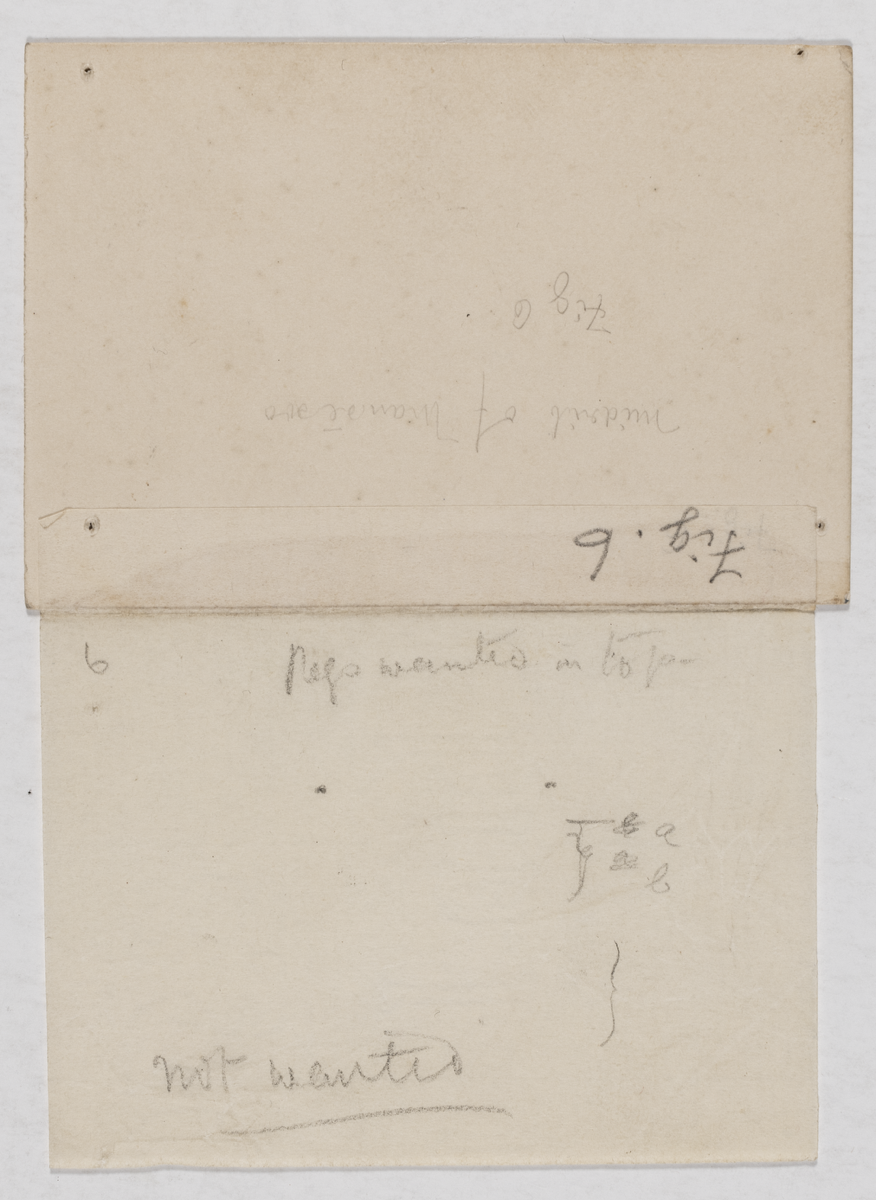 Fig 6
midrib of
Fig. 6
6
wanted in top
a
b
not wanted